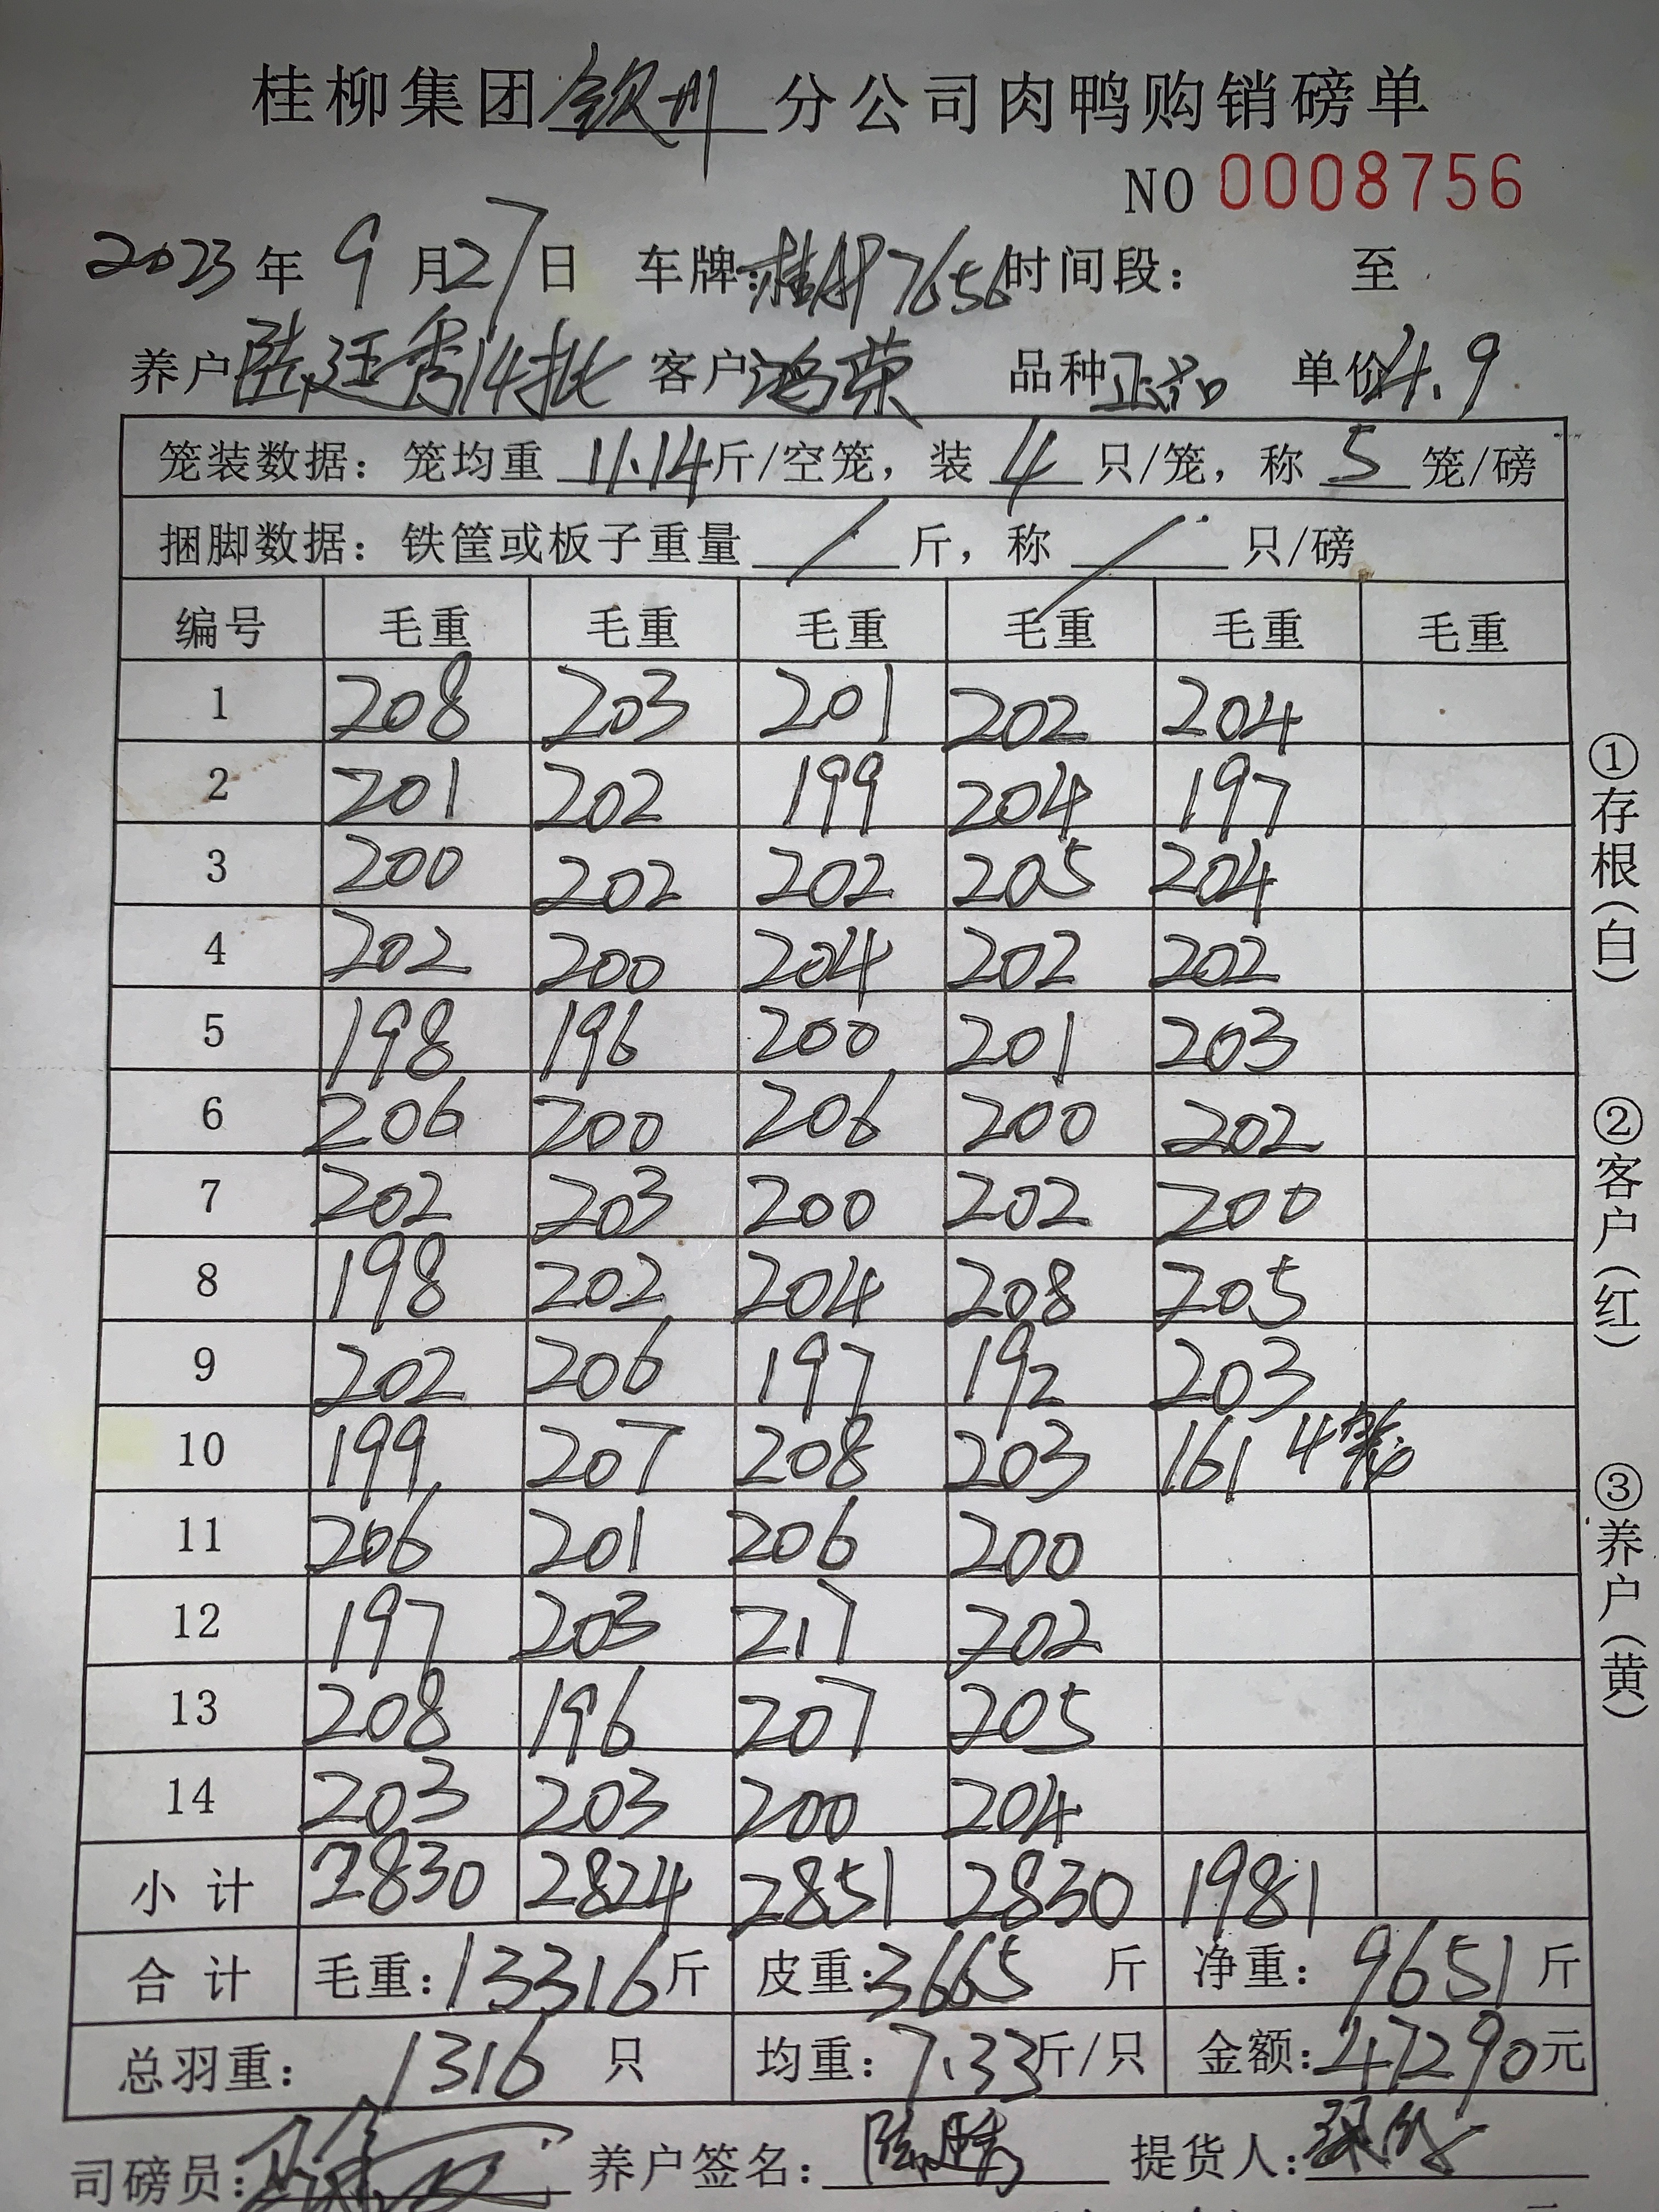 桂柳集团钦州分公司肉鸭购销磅单
NO 0008756
2023年9月27日 车牌:桂 7656 时间段： 至
养户陆廷秀14批 客户鸿荣 品种 单价4.9
笼装数据：笼均重11.14斤/空笼，装4只/笼，称5笼/磅
捆脚数据：铁筐或板子重量 / 斤，称 / 只/磅
编号 毛重 毛重 毛重 毛重 毛重 毛重
1 208 203 201 202 204
2 201 202 199 204 197
3 200 202 202 205 204
4 202 200 204 202 202
5 198 196 200 201 203
6 206 200 206 200 202
7 202 203 200 202 200
8 198 202 204 208 205
9 202 206 197 192 203
10 199 207 208 203 161 4笼
11 206 201 206 200
12 197 203 217 202
13 208 196 207 205
14 203 203 200 204
小计 2830 2824 2851 2830 1981
合计 毛重：13316斤 皮重:3665斤 净重：9651斤
总羽重：1316只 均重：7.33斤/只 金额:47290元
司磅员: 养户签名： 提货人:
①存根（白）
②客户（红）
③养户（黄）